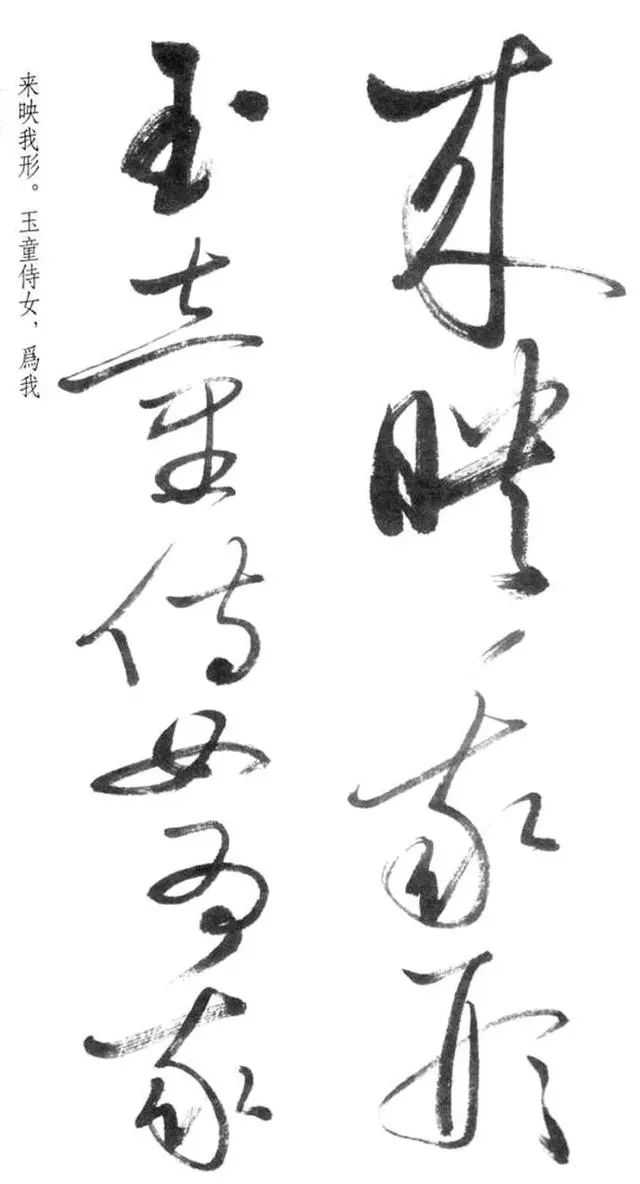 来映我形
玉童侍女为我
来映我形。玉童侍女，爲我